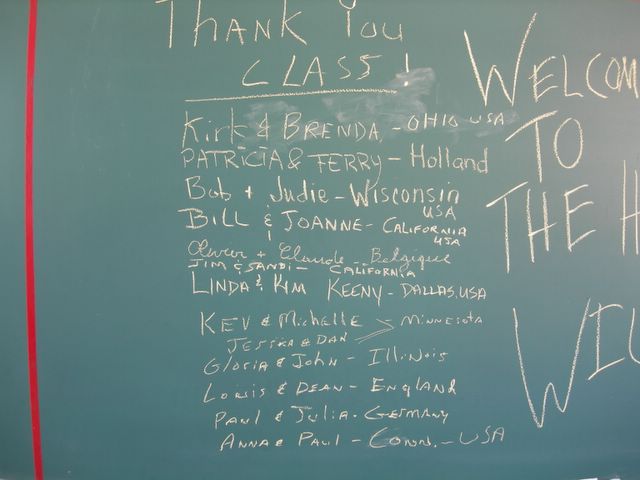 THANK YOU
CLASS!
Kirk & BRENDA - OHIO USA
PATRICIA & TERRY - Holland
Bob + Judie - Wisconsin
USA
BILL & JOANNE - CALIFORNIA
USA
+ Claude - Belgique
JIM & SANDI - CALIFORNIA
LINDA & KIM KEENY - DALLAS, USA
KEV & Michelle - MINNESOTA
JESSICA & DAN
Gloria & John - Illinois
& DEAN - ENGLAND
Paul & Julia - Germany
ANNA & PAUL - CONN. - USA
WELCOM
TO
THE H
WIL